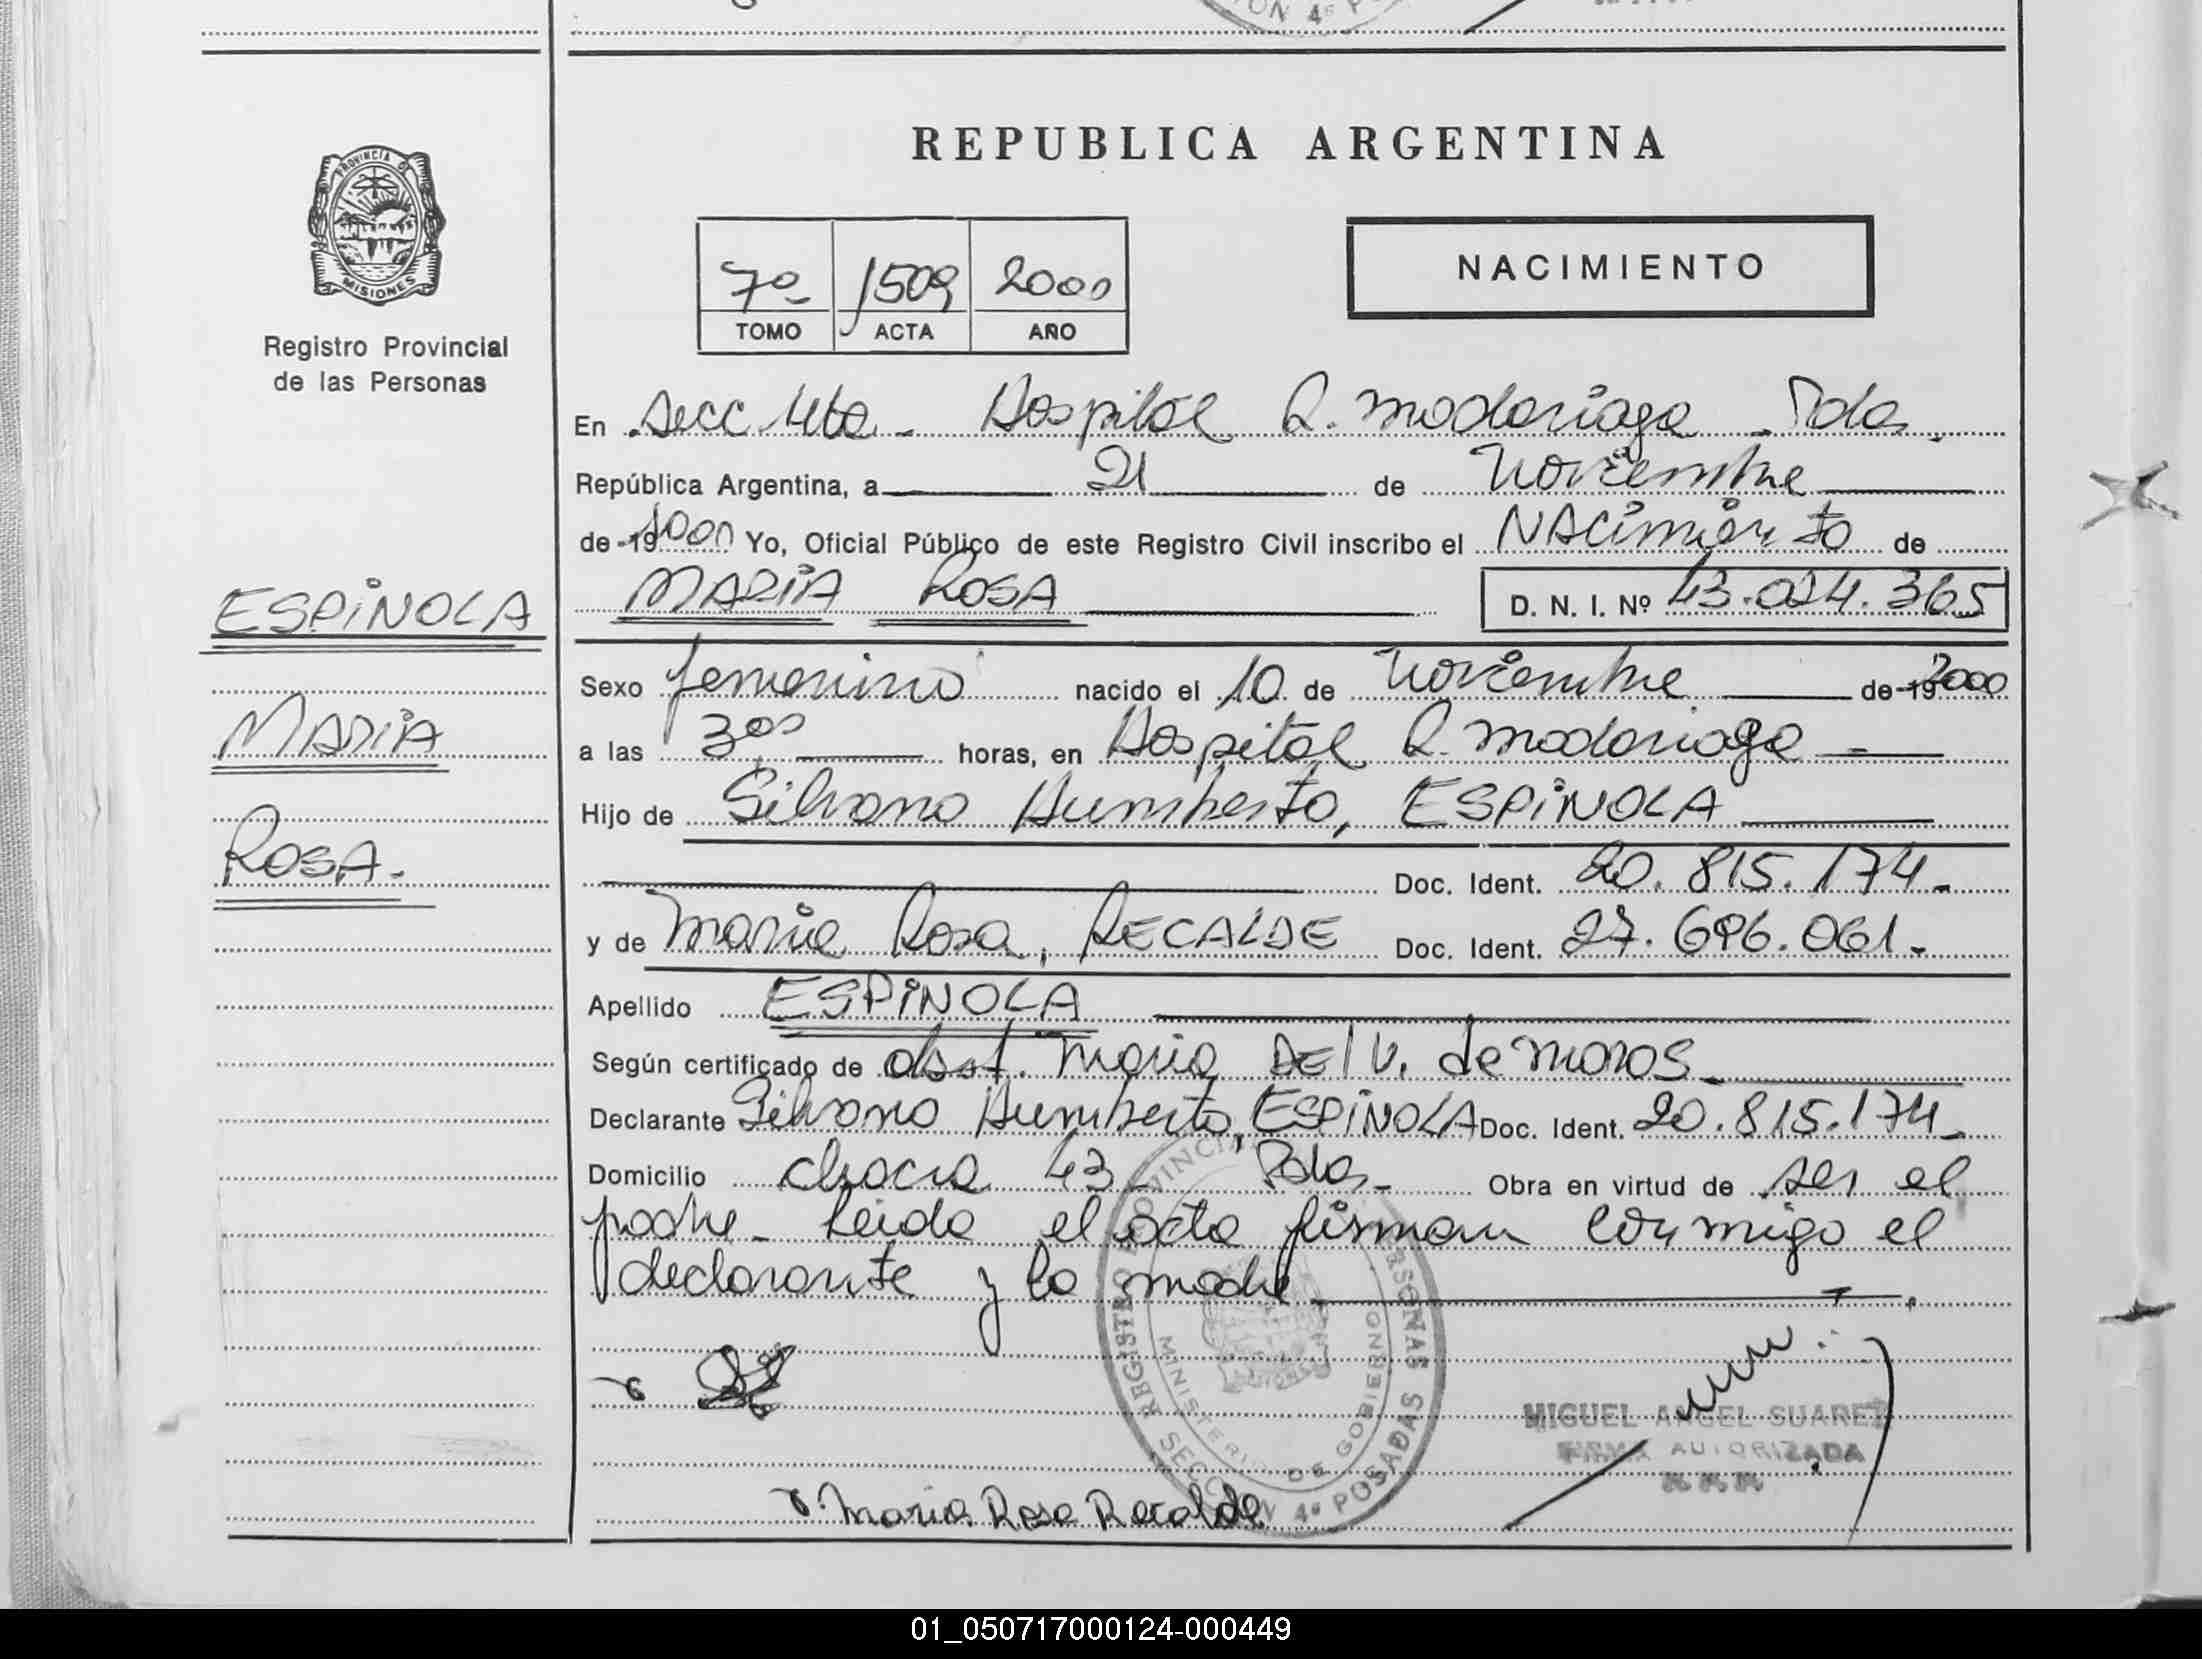 REPUBLICA ARGENTINA
PROVINCIA DE
MISIONES
Registro Provincial
de las Personas
7º 1509 2000
TOMO ACTA AÑO
NACIMIENTO
En Secc 4ta - Hospital R. Madariaga - Pdas.
República Argentina, a 21 de Noviembre
de 19 2000 Yo, Oficial Público de este Registro Civil inscribo el NACimiento de
MARIA ROSA D. N. I. Nº 43.024.365
ESPINOLA
MARIA
ROSA.-
Sexo femenino nacido el 10 de Noviembre de 19 2000
a las 3:05 horas, en Hospital R. Madariaga -
Hijo de Silvano Humberto, ESPINOLA
Doc. Ident. 20.815.174.-
y de Maria Rosa, RECALDE Doc. Ident. 27.696.061.-
Apellido ESPINOLA
Según certificado de obst. Maria DEl V. de Moros
Declarante Silvano Humberto, ESPINOLA Doc. Ident. 20.815.174.-
Domicilio chacra 43 - Pdas.- Obra en virtud de ser el
padre - Leida el acta firman conmigo el
declarante y la madre
REGISTRO PROVINCIAL PERSONAS
MINISTERIO DE GOBIERNO
SECCION 4ª POSADAS
MIGUEL ANGEL SUAREZ
FIRMA AUTORIZADA
Maria Rosa Recalde
01_050717000124-000449